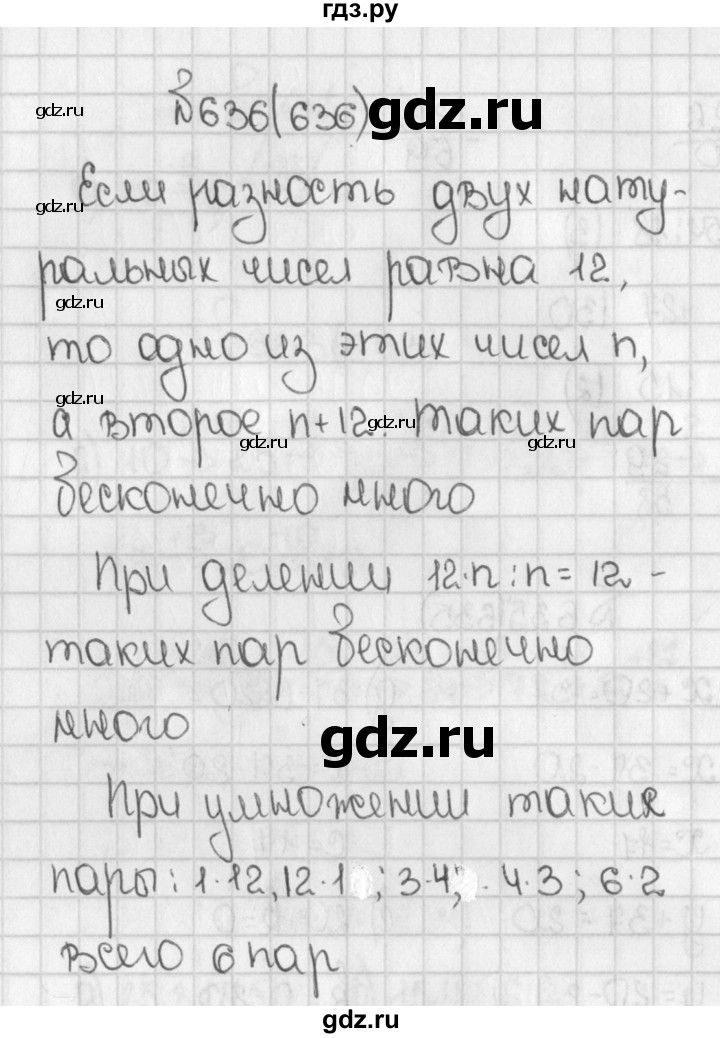 гдз.ру
№636(636) gdz.ru
gdz.ru
Если разность двух нату-
gdz.ru
ральных чисел равна 12,
gdz.ru
то одно из этих чисел n,
gdz.ru
а второе n+12. таких пар
gdz.ru gdz.ru gdz.ru
бесконечно много
При делении 12·n:n=12 -
таких пар бесконечно
много
gdz.ru
При умножении такие
пары: 1·12, 12·1 ; 3·4; 4·3 ; 6·2
всего 6 пар
gdz.ru